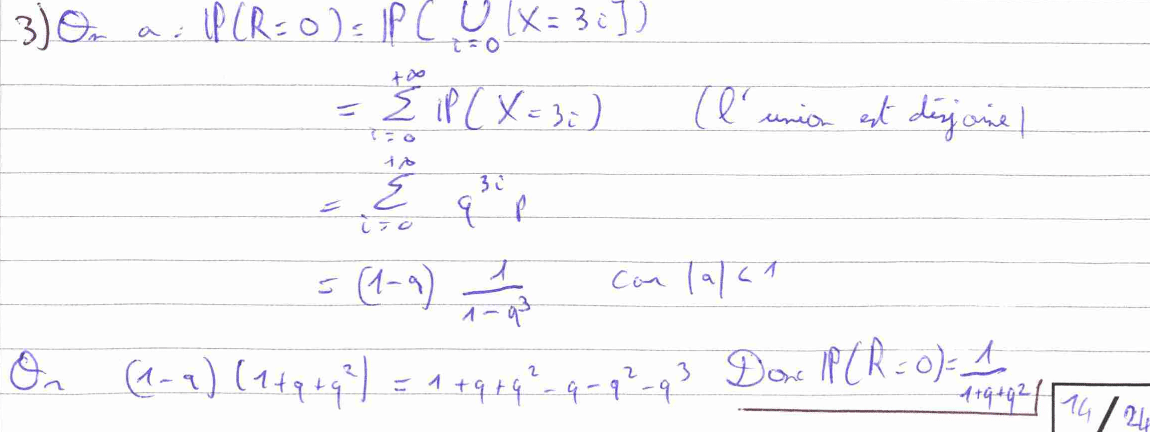 3) On a : IP(R=0) = IP( ∪_{i=0} [X=3i])
= Σ_{i=0}^{+∞} IP(X=3i) (l'union est disjointe)
= Σ_{i=0}^{+∞} q^{3i} p
= (1-q) 1/(1-q^3) car |q|<1
Or (1-q)(1+q+q^2) = 1+q+q^2-q-q^2-q^3 Donc IP(R=0)=1/(1+q+q^2)
14/24